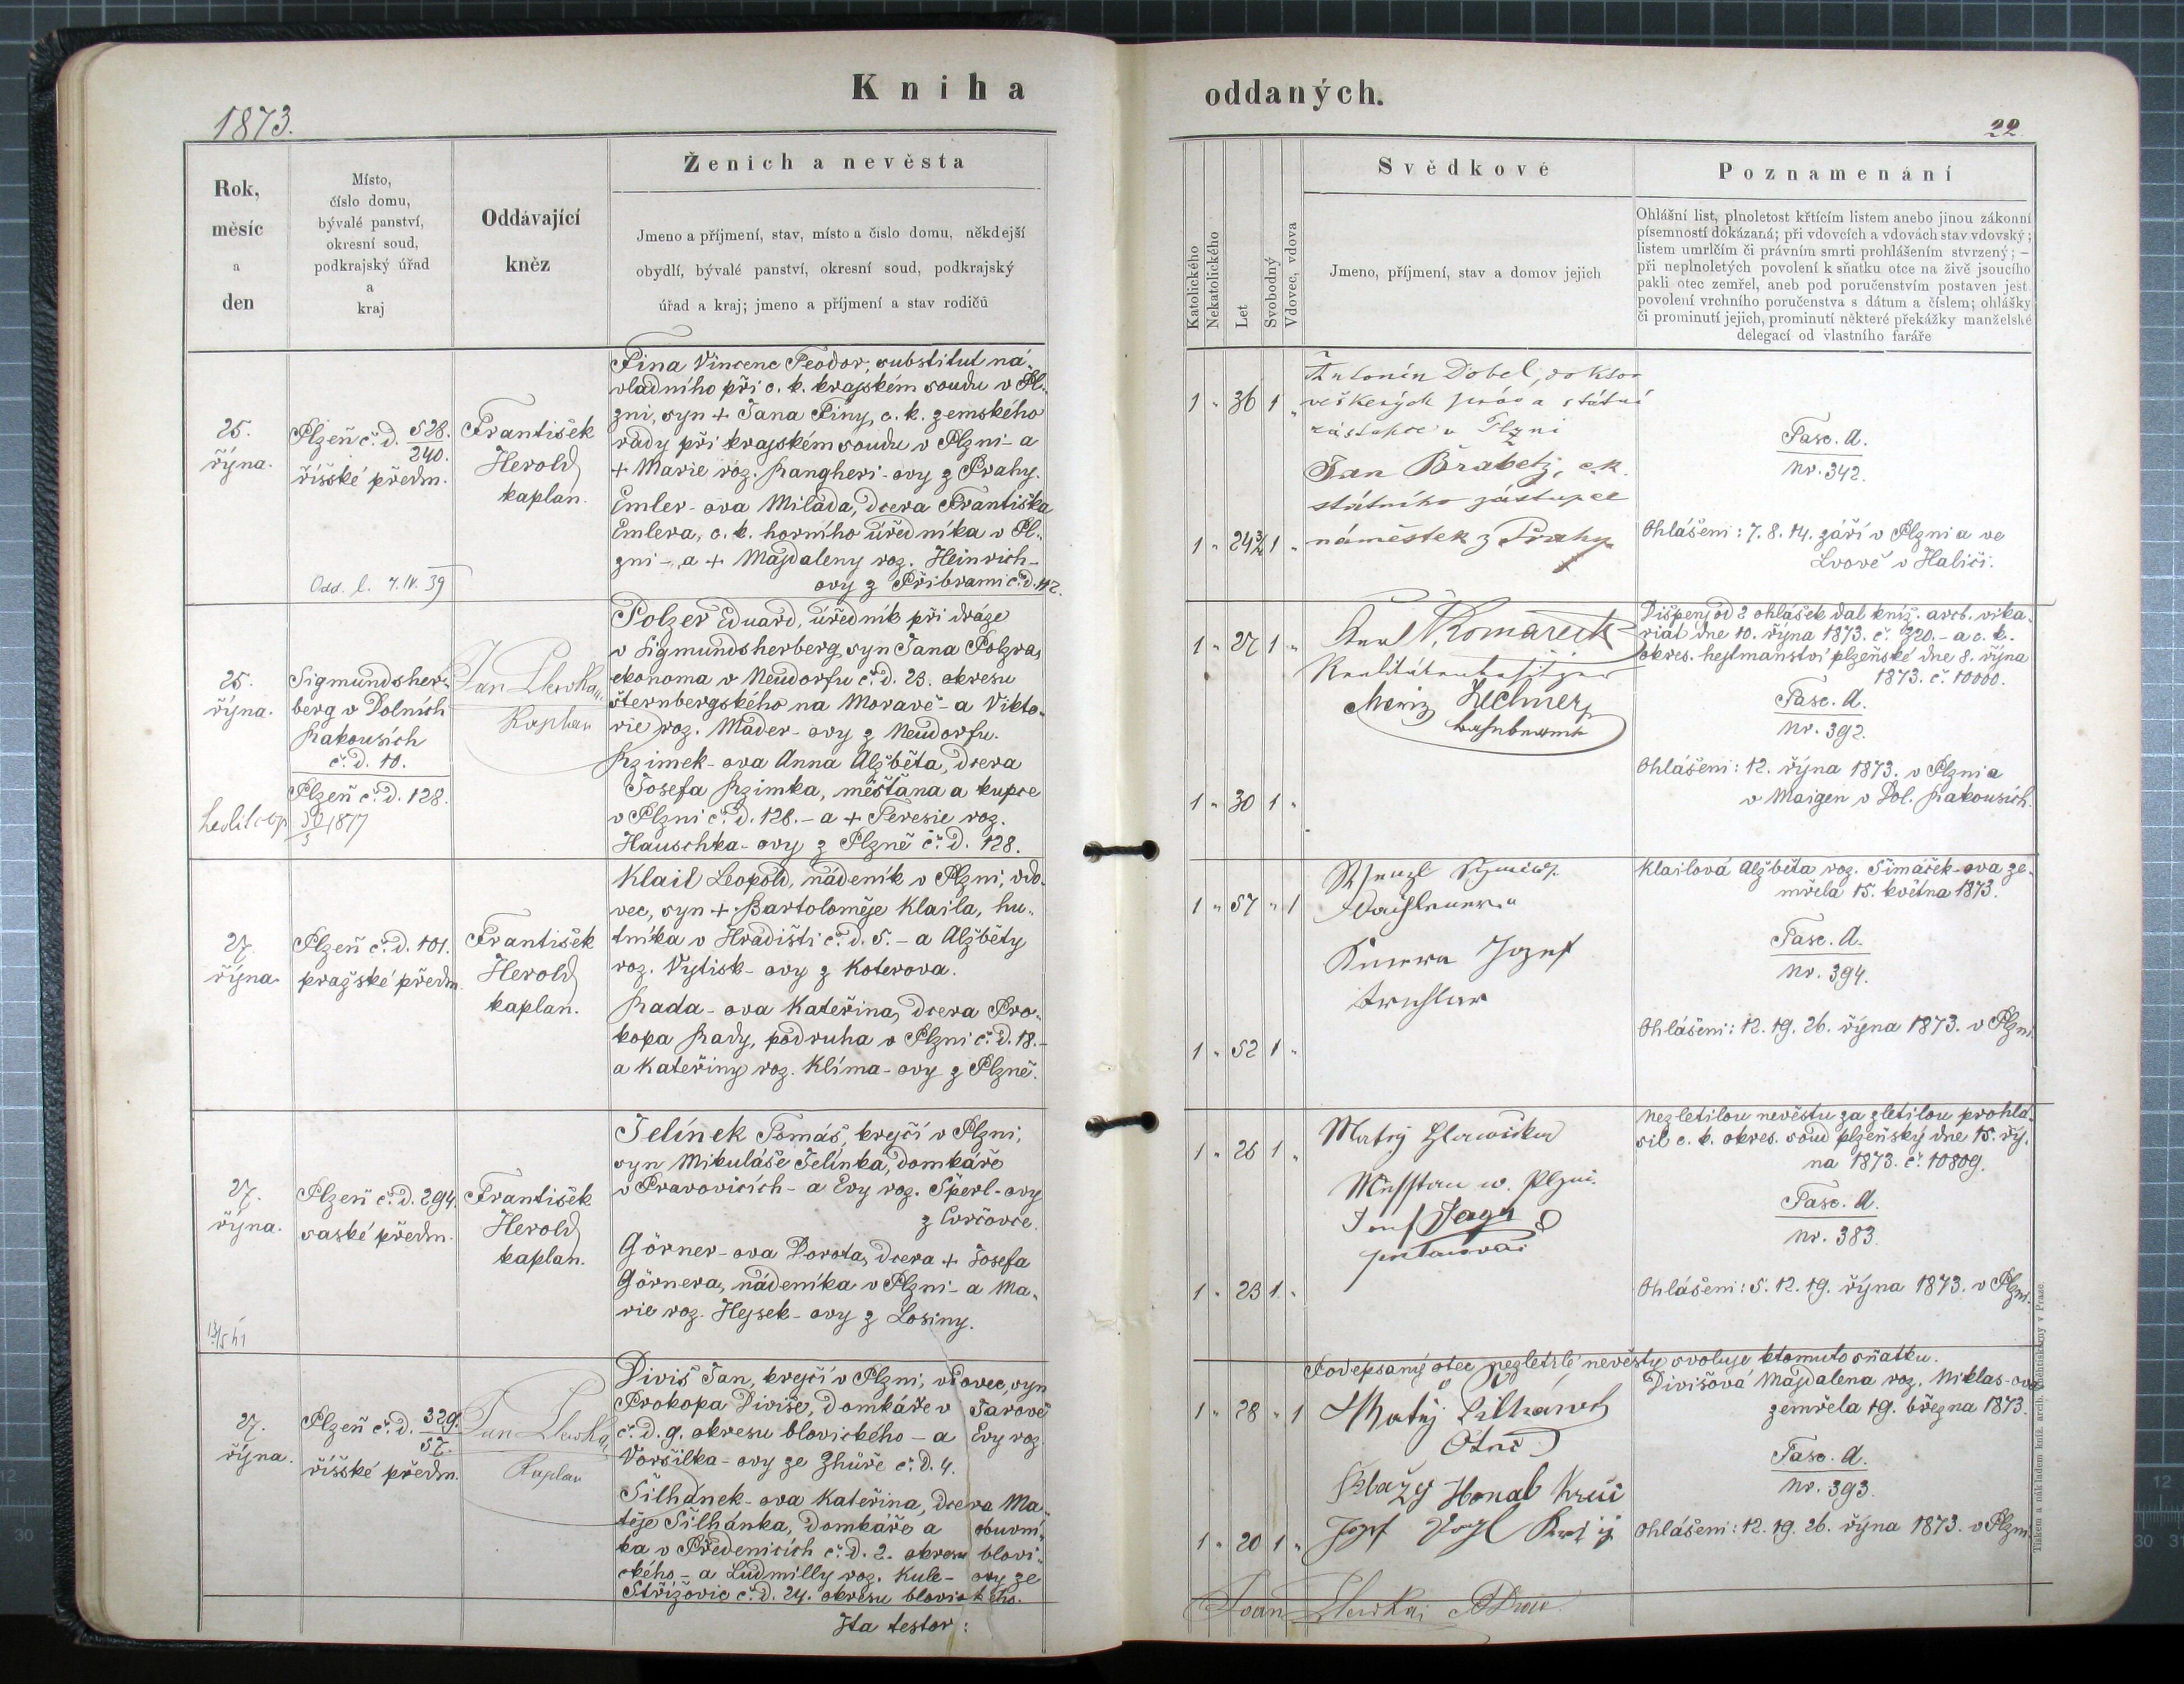 Kniha
1873.
Rok,
měsíc
a
den
Místo,
číslo domu,
bývalé panství,
okresní soud,
podkrajský úřad
a
kraj
Oddávající
kněz
Ženich a nevěsta
Jmeno a příjmení, stav, místo a číslo domu, někdejší
obydlí, bývalé panství, okresní soud, podkrajský
úřad a kraj; jmeno a příjmení a stav rodičů
25.
října.
Plzeň č. d. 528.
240.
říšské předm.
František
Herold
kaplan.
Fina Vincenc Teodor, substitut ná-
vladního při c. k. krajském soudu v Pl-
zni, syn + Jana Finy, c. k. zemského
rady při krajském soudu v Plzni - a
+ Marie roz. Rangheri-ovy z Prahy.
Emler-ova Milada, dcera Františka
Emlera, c. k. horního úředníka v Pl-
zni - a + Majdaleny roz. Heinrich-
ovy z Příbrami č. d. 112.
Odd. l. 4. IV. 39
25.
října.
Sigmundsher-
berg v Dolních
Rakousích
č. d. 10.
Plzeň č. d. 128.
1877
Jan
Kaplan
Polzer Eduard, úředník při dráze
v Sigmundsherberg, syn Jana Polzra,
ekonoma v Neudorfu č. d. 23. okresu
šternbergského na Moravě - a Vikto-
rie roz. Mader-ovy z Neudorfu.
Rzimek-ova Anna Alžběta, dcera
Josefa Rzimka, měšťana a kupce
v Plzni č. d. 128. - a + Teresie roz.
Hauschka-ovy z Plzně č. d. 128.
27.
října.
Plzeň č. d. 101.
pražské předm.
František
Herold
kaplan.
Klail Leopold, nádeník v Plzni, vdo-
vec, syn + Bartoloměje Klaila, hu-
tníka v Hradišti č. d. 5. - a Alžběty
roz. Vytisk-ovy z Koterova.
Rada-ova Kateřina, dcera Pro-
kopa Rady, podruha v Plzni č. d. 18. -
a Kateřiny roz. Klíma-ovy z Plzně.
27.
října.
Plzeň č. d. 294.
saské předm.
František
Herold
kaplan.
Jelínek Tomáš, krejčí v Plzni,
syn Mikuláše Jelínka, domkáře
v Pravovicích - a Evy roz. Šperl-ovy
z
Görner-ova Dorota, dcera + Josefa
Görnera, nádeníka v Plzni - a Ma-
rie roz. Hejsek-ovy z Losiny.
27.
října.
Plzeň č. d. 329.
57.
říšské předm.
Jan
Kaplan
Diviš Jan, krejčí v Plzni, vdovec, syn
Prokopa Diviše, domkáře v Žárově
č. d. 9. okresu blovického - a Evy roz.
Voršilka-ovy ze Zhůře č. d. 4.
Šilhánek-ova Kateřina, dcera Ma-
těje Šilhánka, domkáře a obuvní-
ka v Předenicích č. d. 2. okresu blovi-
ckého - a Ludmilly roz. Kule-ovy ze
Střížovic č. d. 24. okresu blovického.
Ita testor:
oddaných.
22.
Katolického
Nekatolického
Let
Svobodný
Vdovec, vdova
Svědkové
Jmeno, příjmení, stav a domov jejich
Poznamenání
Ohlášní list, plnoletost křtícím listem anebo jinou zákonní
písemností dokázaná; při vdovcích a vdovách stav vdovský;
listem umrlčím či právním smrti prohlášením stvrzený; —
při neplnoletých povolení k sňatku otce na živě jsoucího
pakli otec zemřel, aneb pod poručenstvím postaven jest
povolení vrchního poručenstva s dátum a číslem; ohlášky
či prominutí jejich, prominutí některé překážky manželské
delegací od vlastního faráře
1 " 36 1 "
Antonín Dobel, doktor
veškerých práv a státní
zástupce v Plzni
Jan Brabetz, c.k.
státního zástupce
1 " 24 3/4 1 "
náměstek z Prahy
Fasc. A.
Nr. 342.
Ohlášeni: 7. 8. 14. září v Plzni a ve
Lvově v Haliči.
1 " 27 1 "
Komareck
Realitätenbesitzer
Moriz Lechner
1 " 30 1 "
Dispens od 2 ohlášek dal kníž. arcb. vika-
riát dne 10. října 1873. č. 320. - a c. k.
okres. hejtmanství plzeňské dne 8. října
1873. č. 10000.
Fasc. A.
Nr. 392.
Ohlášeni: 12. října 1873. v Plzni a
v Maigen v Dol. Rakousích.
1 " 57 " 1
Wenzl
Josef
1 " 52 1 "
Klailová Alžběta roz. Šimáček-ova ze-
mřela 15. května 1873.
Fasc. A.
Nr. 394.
Ohlášeni: 12. 19. 26. října 1873. v Plzni.
1 " 26 1 "
Matěj
w. Plzni.
1 " 23 1 "
Nezletilou nevěstu za zletilou prohlá-
sil c. k. okres. soud plzeňský dne 15. ří-
na 1873. č. 10809.
Fasc. A.
Nr. 383.
Ohlášeni: 5. 12. 19. října 1873. v Plzni.
Podepsaný otec nezletilé nevěsty svoluje k tomuto sňatku.
1 " 28 " 1
Matěj Šilhánek
Otec
Blažej
Josef
1 " 20 1 "
Divišová Majdalena roz. Miklas-ova
zemřela 19. března 1873.
Fasc. A.
Nr. 393.
Ohlášeni: 12. 19. 26. října 1873. v Plzni.
Tiskem a nákladem kníž. arcib. knihtiskárny v Praze.